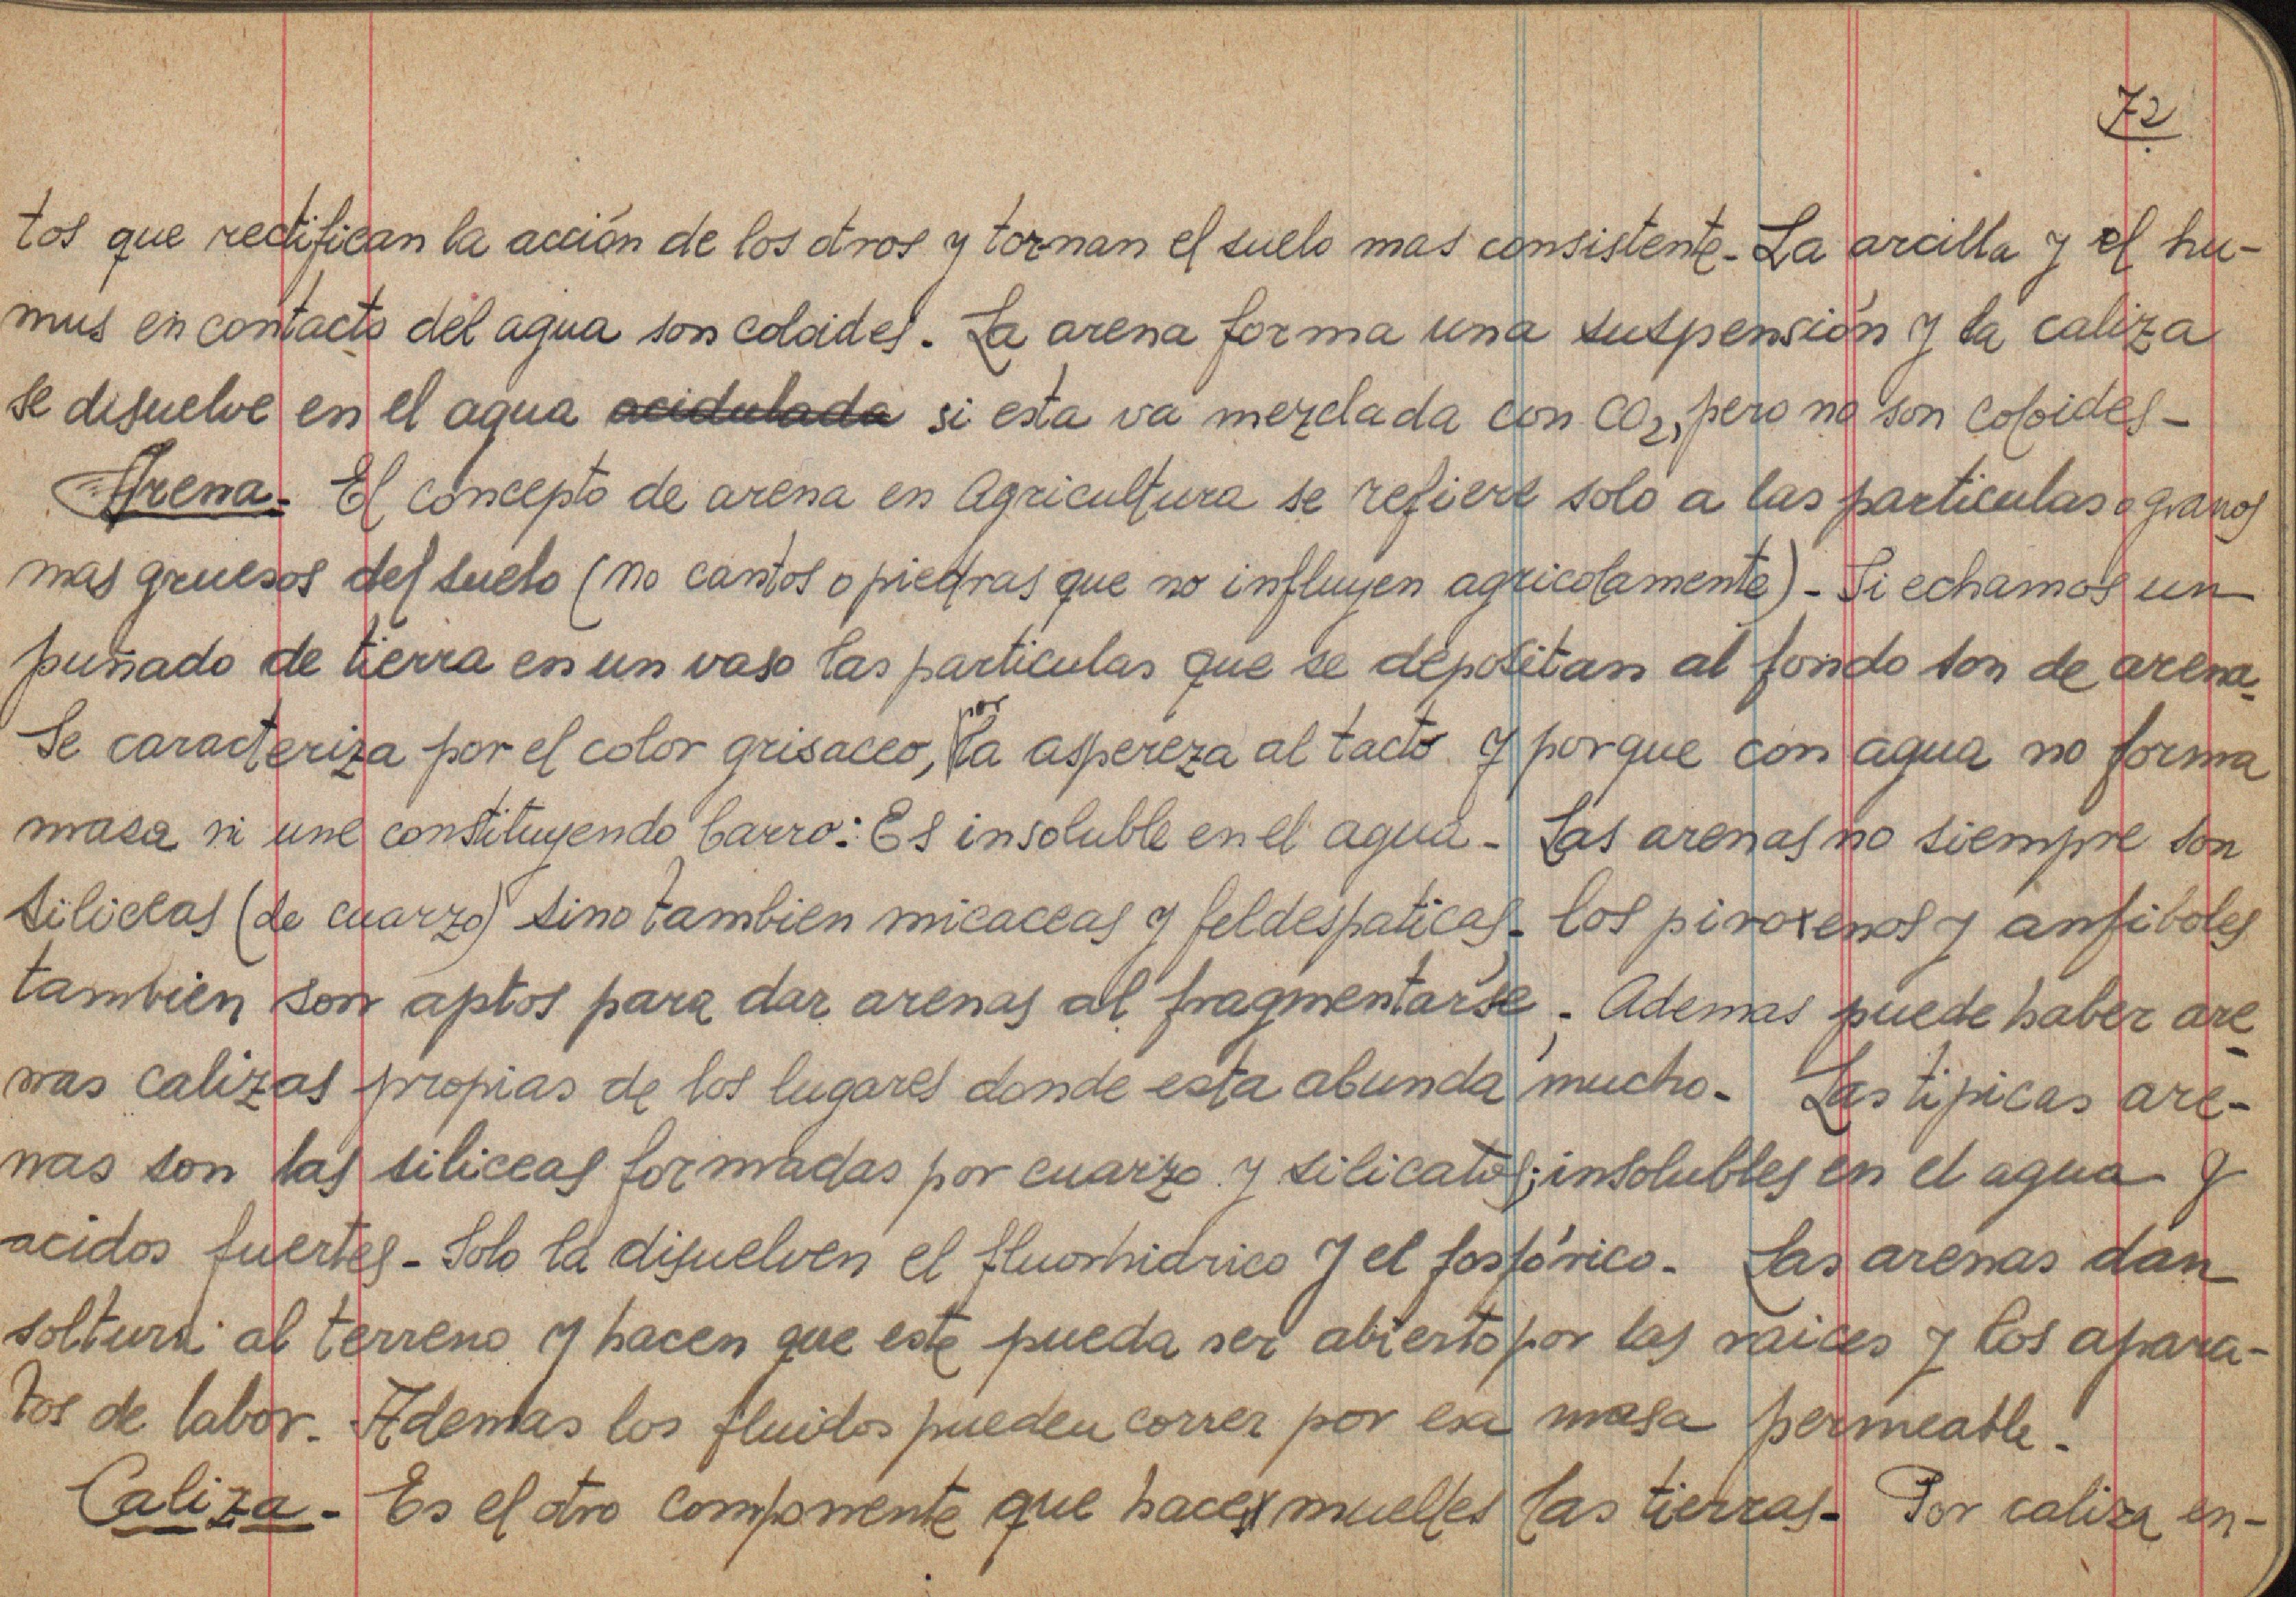 72
tos que rectifican la acción de los otros y tornan el suelo mas consistente - La arcilla y el hu-
mus en contacto del agua son coloides. La arena forma una suspensión y la caliza
se disuelve en el agua acidulada si esta va mezclada con CO₂, pero no son coloides -
Arena - El concepto de arena en Agricultura se refiere solo a las particulas o granos
mas gruesos del suelo (no cantos o piedras que no influyen agricolamente) - Si echamos un
puñado de tierra en un vaso las particulas que se depositan al fondo son de arena -
Se caracteriza por el color grisaceo, por la aspereza al tacto y porque con agua no forma
masa ni une constituyendo barro: Es insoluble en el agua - Las arenas no siempre son
siliceas (de cuarzo) sino tambien micaceas y feldespaticas - los piroxenos y anfiboles
tambien son aptos para dar arenas al fragmentarse - Ademas puede haber are-
nas calizas propias de los lugares donde esta abunda mucho - Las tipicas are-
nas son las siliceas formadas por cuarzo y silicatos; insolubles en el agua y
acidos fuertes - Solo la disuelven el fluorhidrico y el fosfórico - Las arenas dan
soltura al terreno y hacen que este pueda ser abierto por las raices y los apara-
tos de labor. Ademas los fluidos pueden correr por esa masa permeable.
Caliza - Es el otro componente que hace muelles las tierras - Por caliza en-